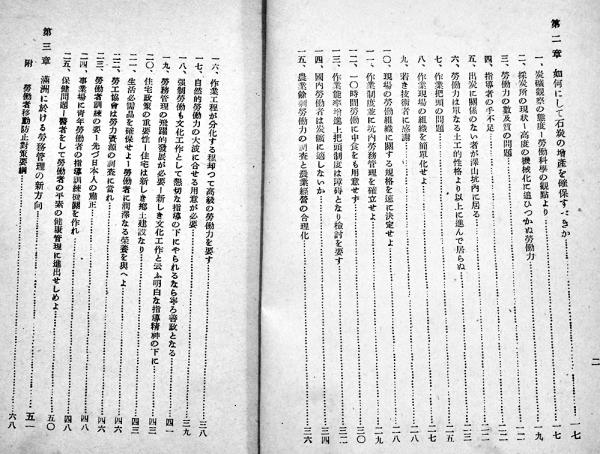 二
第二章 如何にして石炭の増產を確保すべきか……一七
一、炭礦觀察の態度—勞働科學の觀點より……一七
二、採炭所の現狀—高度の機械化に追ひつかぬ勞働力……一九
三、勞働力の數及質の問題……二一
四、指導者の手不足……二二
五、出炭に關係のない者が澤山坑內に居る……二三
六、勞働力は單なる土工的性格より以上に進んで居らぬ……二五
七、作業把頭の問題……一七
八、作業現場の組織を簡單化せよ……二八
九、若き技術者に感謝……二八
一〇、現場の勞働組織に關する規格を速に決定せよ……二八
一一、作業制度並に坑內勞務管理を確立せよ……三〇
一二、一〇時間勞働に中食をも用意せず……三〇
一三、作業能率增進上把頭制度は障碍となり檢討を要す……三二
一四、國內勞働者は炭礦に適しないか……三四
一五、農業餘剩勞働力の調査と農業經營の合理化……三六
一六、作業工程が分化する程却つて高級の勞働力を要す……三八
一七、自然的勞働力の大波に合せる用意が必要……三九
一八、强制勞働も文化工作として懇切な指導の下にやられるなら寧ろ善政となる
一九、勞務管理の飛躍的發展が必要—新しき文化工作と云ふ明白な指導精神の下に……四一
二〇、住宅政策の重要性—住宅は新しき鄕土建設なり……四三
二一、生活必需品を確保せよ—勞働者に潤澤なる榮養を與へよ……四二
二二、勞工協會は勞力資源の調査に當れ……四四
二三、勞働者訓練の要—先づ日本人の矯正……四八
二四、事業場に靑年勞働者の指導訓練機關を作れ……四八
二五、保健問題—醫者をして勞働者の平素の健康管理に進出せしめよ……五〇
第三章 滿洲に於ける勞務管理の新方向……五一
附 勞働者移動防止對策要綱……六八